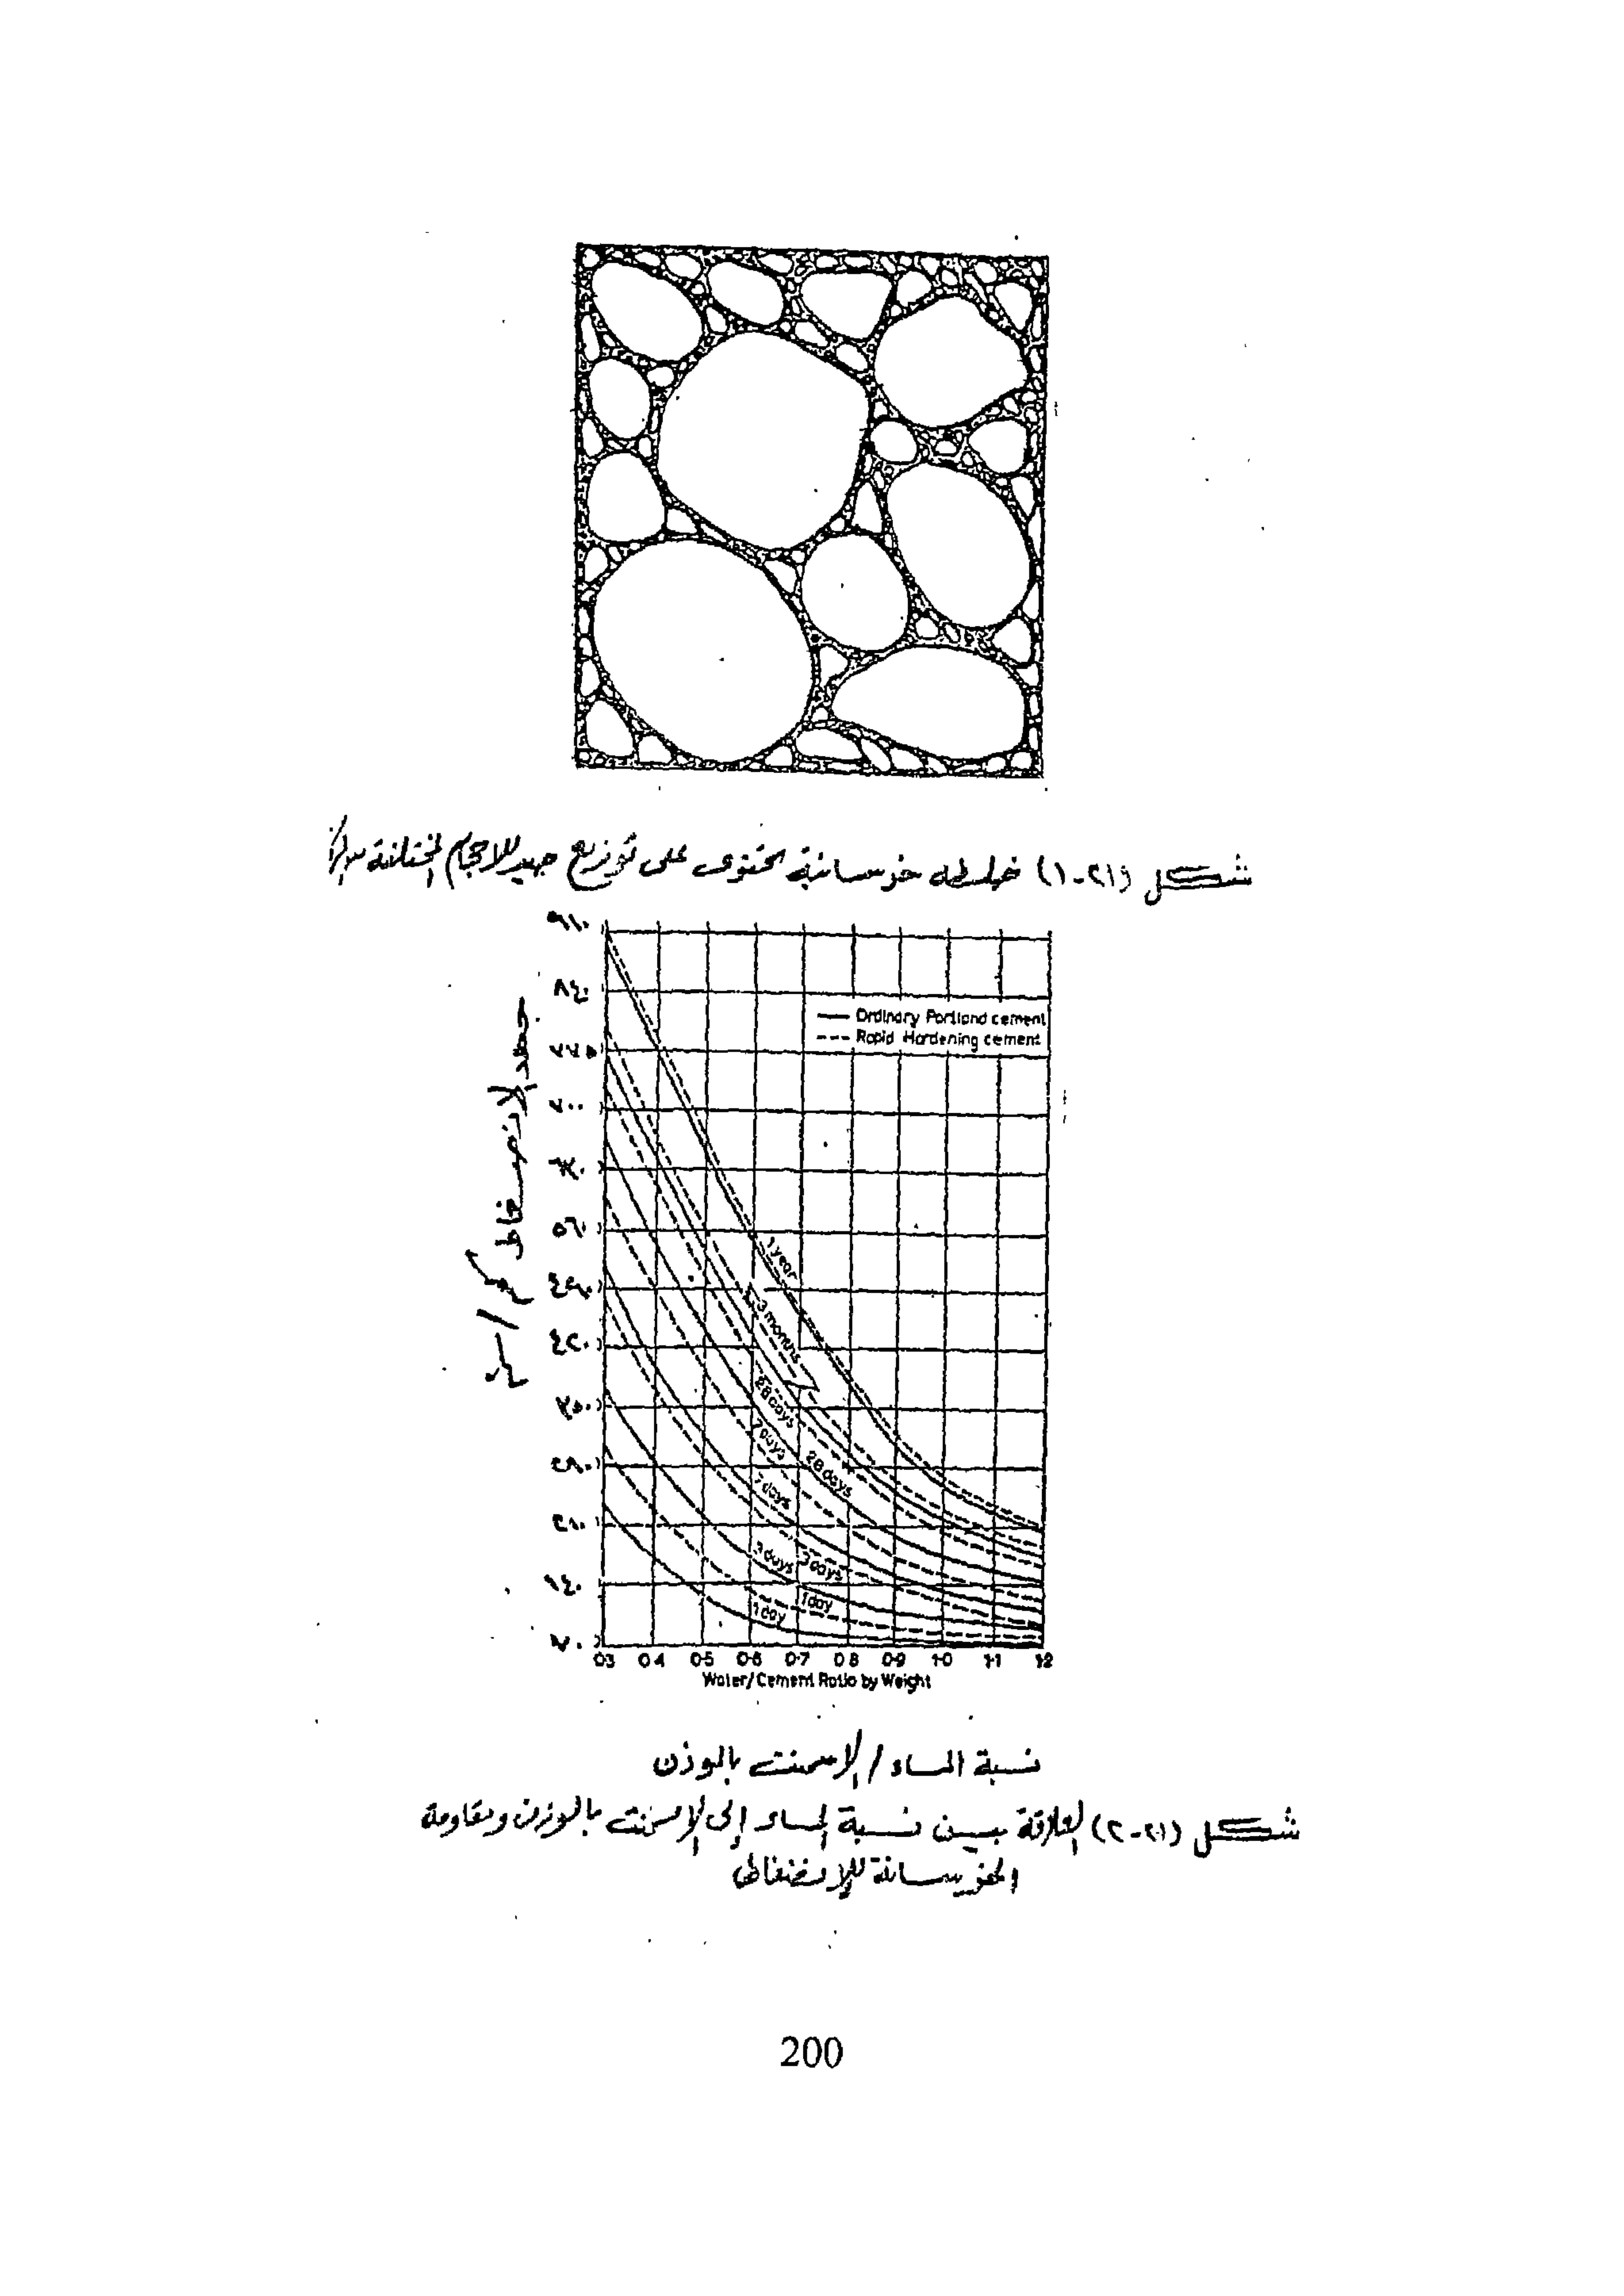 شكل (٢١-١) خلطه خرسانية تحتوى على توزيع جيد للاحجام المختلفة
٩١٠
٨٤٠
٧٧٠
٧٠٠
٦٣٠
٥٦٠
٤٩٠
٤٢٠
٣٥٠
٢٨٠
٢١٠
١٤٠
٧٠
جهد الانضغاط كجم/سم٢
Ordinary Portland cement
Rapid Hardening cement
1 year
3 months
28 days
28 days
7 days
7 days
3 days
3 days
1 day
1 day
0·3 0·4 0·5 0·6 0·7 0·8 0·9 1·0 1·1 1·2
Water/Cement Ratio by Weight
نسبة الماء / الاسمنت بالوزن
شكل (٢١-٢) العلاقة بين نسبة الماء إلى الإسمنت بالوزن ومقاومة
الخرسانة للإنضغاط
200